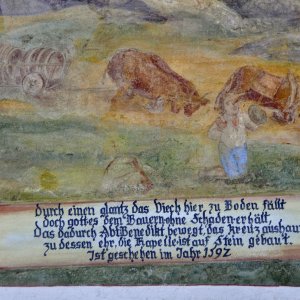 durch einen glantz das Viech hier zu Boden fällt
doch gottes dem Bauern ohne Schaden erhält,
Das dadurch Abt Benedikt bewegt, das Kreuz aushau
zu dessen ehr, die Kapelle ist auf Stein gebaut.
Ist geschehen im Jahr 1592